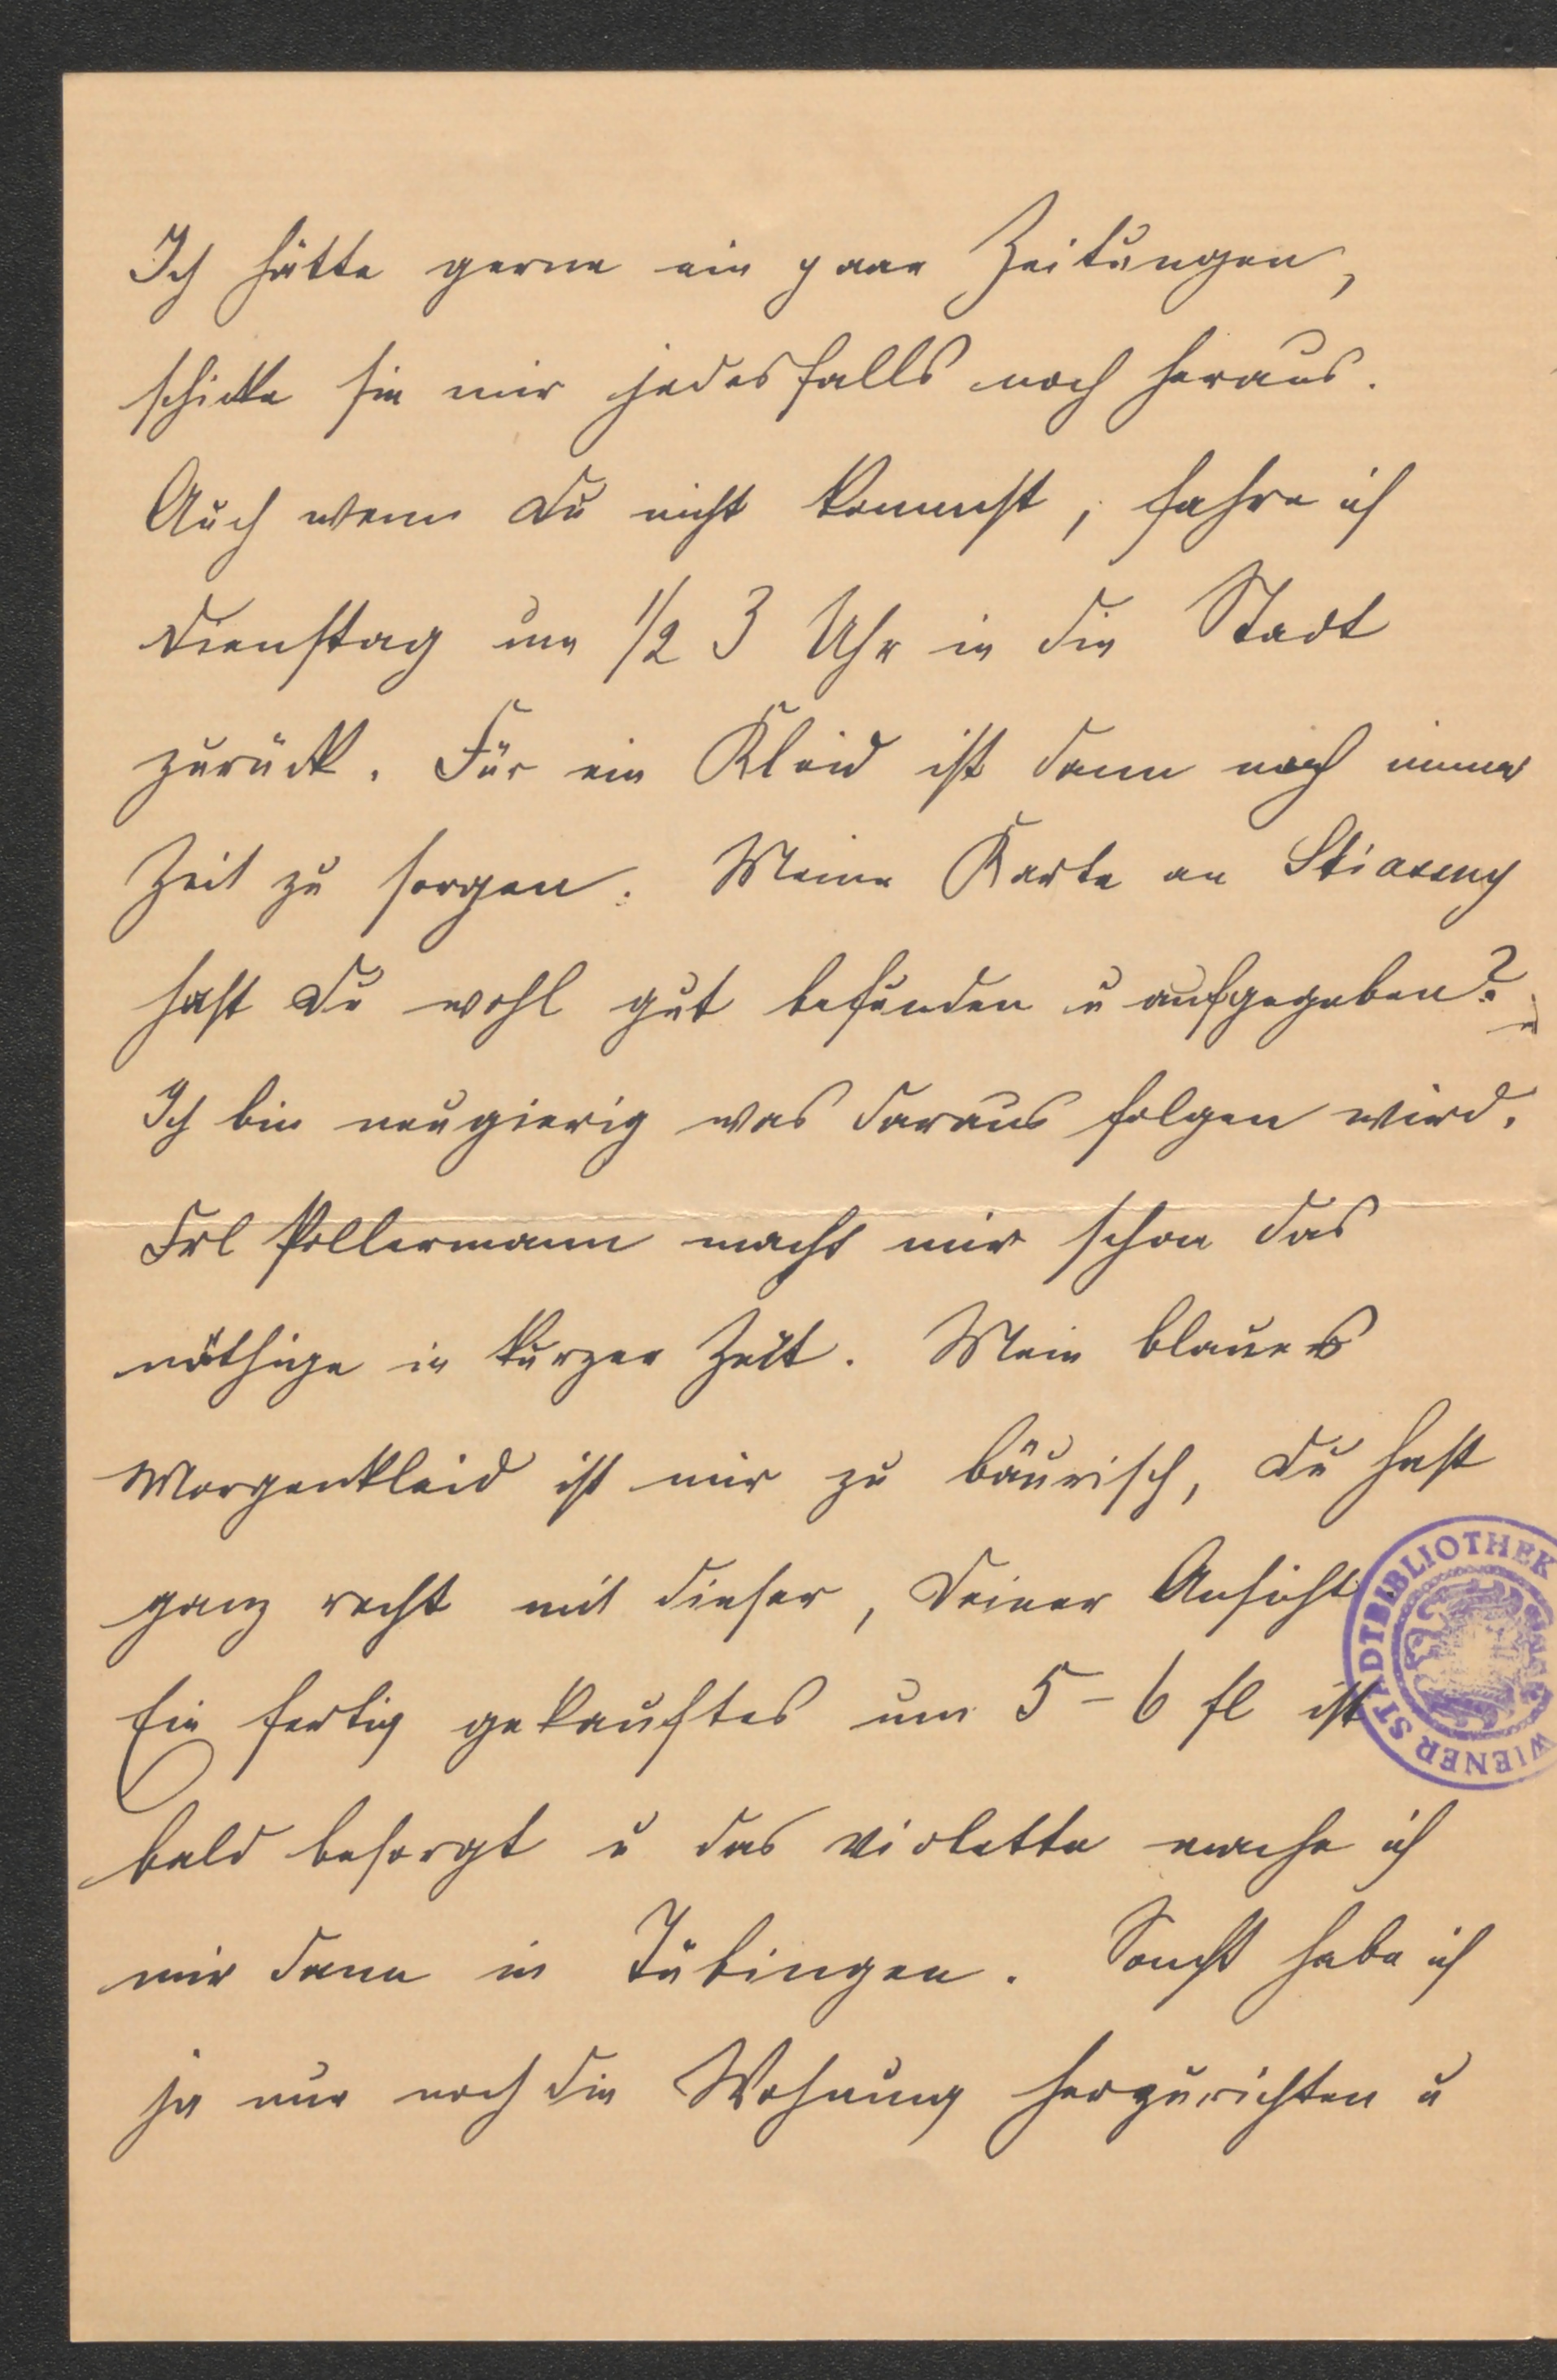 Ich hätte gerne ein paar Zeitungen,
schicke sie mir jedesfalls noch heraus.
Auch wenn Du nicht kommst, fahre ich
Dienstag um 1/2 3 Uhr in die Stadt
zurück. Für ein Kleid ist dann noch immer
Zeit zu sorgen. Meine Karte an Stiassny
hast Du wohl gut befunden u aufgegeben?
Ich bin neugierig was daraus folgen wird.
Frl Pollermann macht mir schon das
nöthige in kurzer Zeit. Mein blaues
Morgenkleid ist mir zu bäurisch, Du hast
ganz recht mit dieser, Deiner Ansicht
Ein fertig gekauftes um 5-6 fl ist
bald besorgt u das violette mache ich
mir dann in Tübingen. Sonst habe ich
ja nur noch die Wohnung herzurichten u
WIENER STADTBIBLIOTHEK